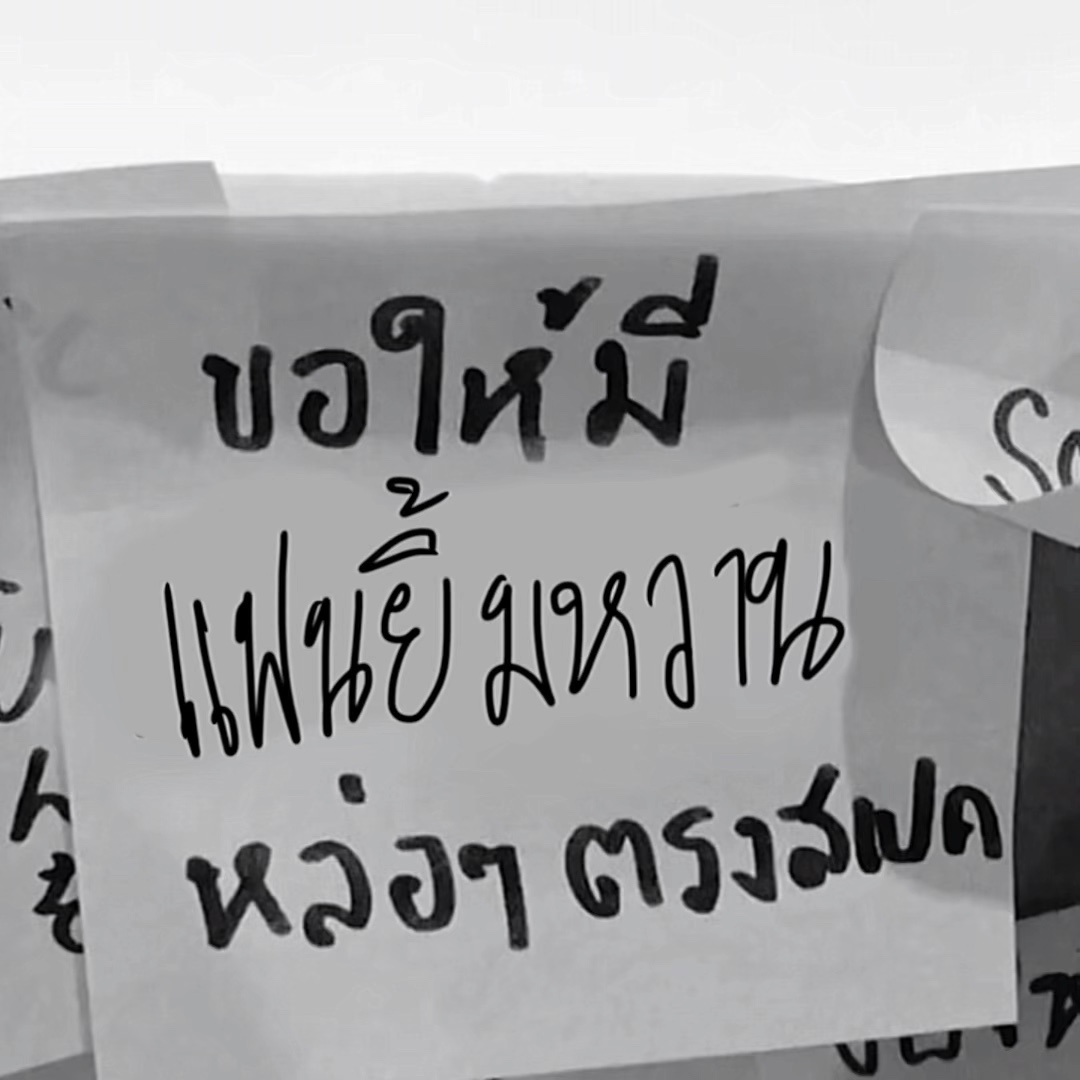 ขอให้มี
แฟนยิ้มหวาน
หล่อๆ ตรงสเปค